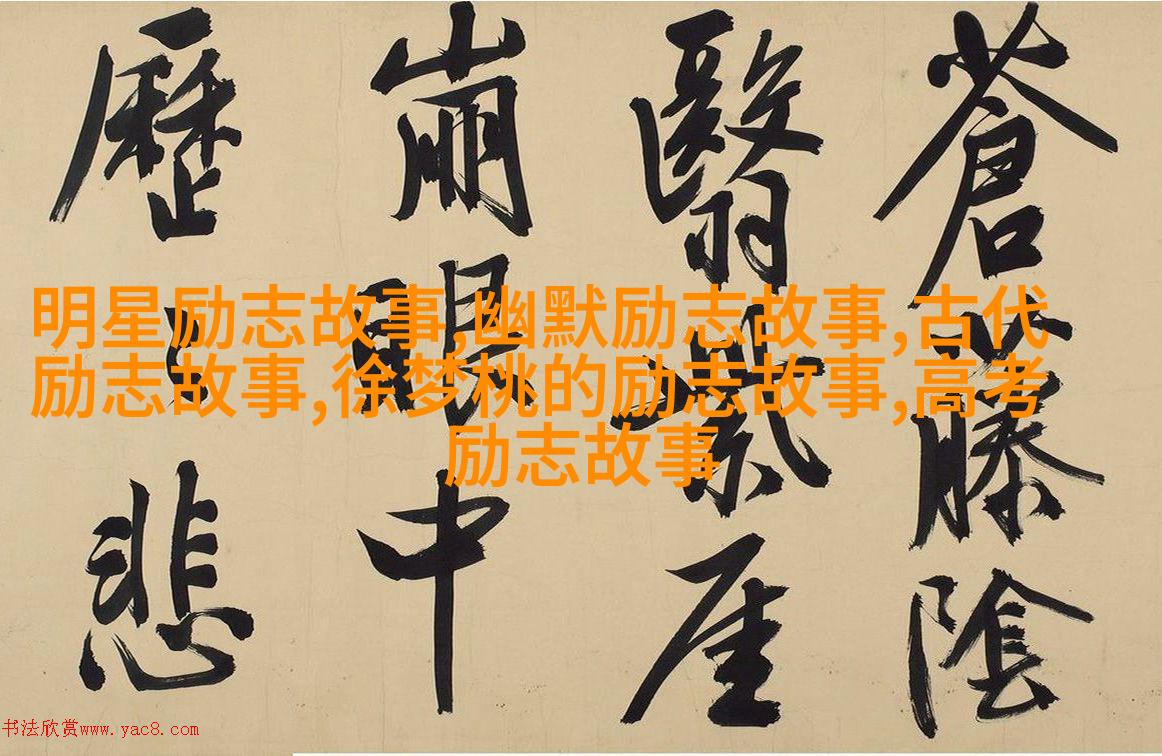 蒼藤陰
翳紫厓
崩眼中
歷々悲
明星励志故事,幽默励志故事,古代
励志故事,徐梦桃的励志故事,高考
励志故事
书法欣赏www.yac8.com